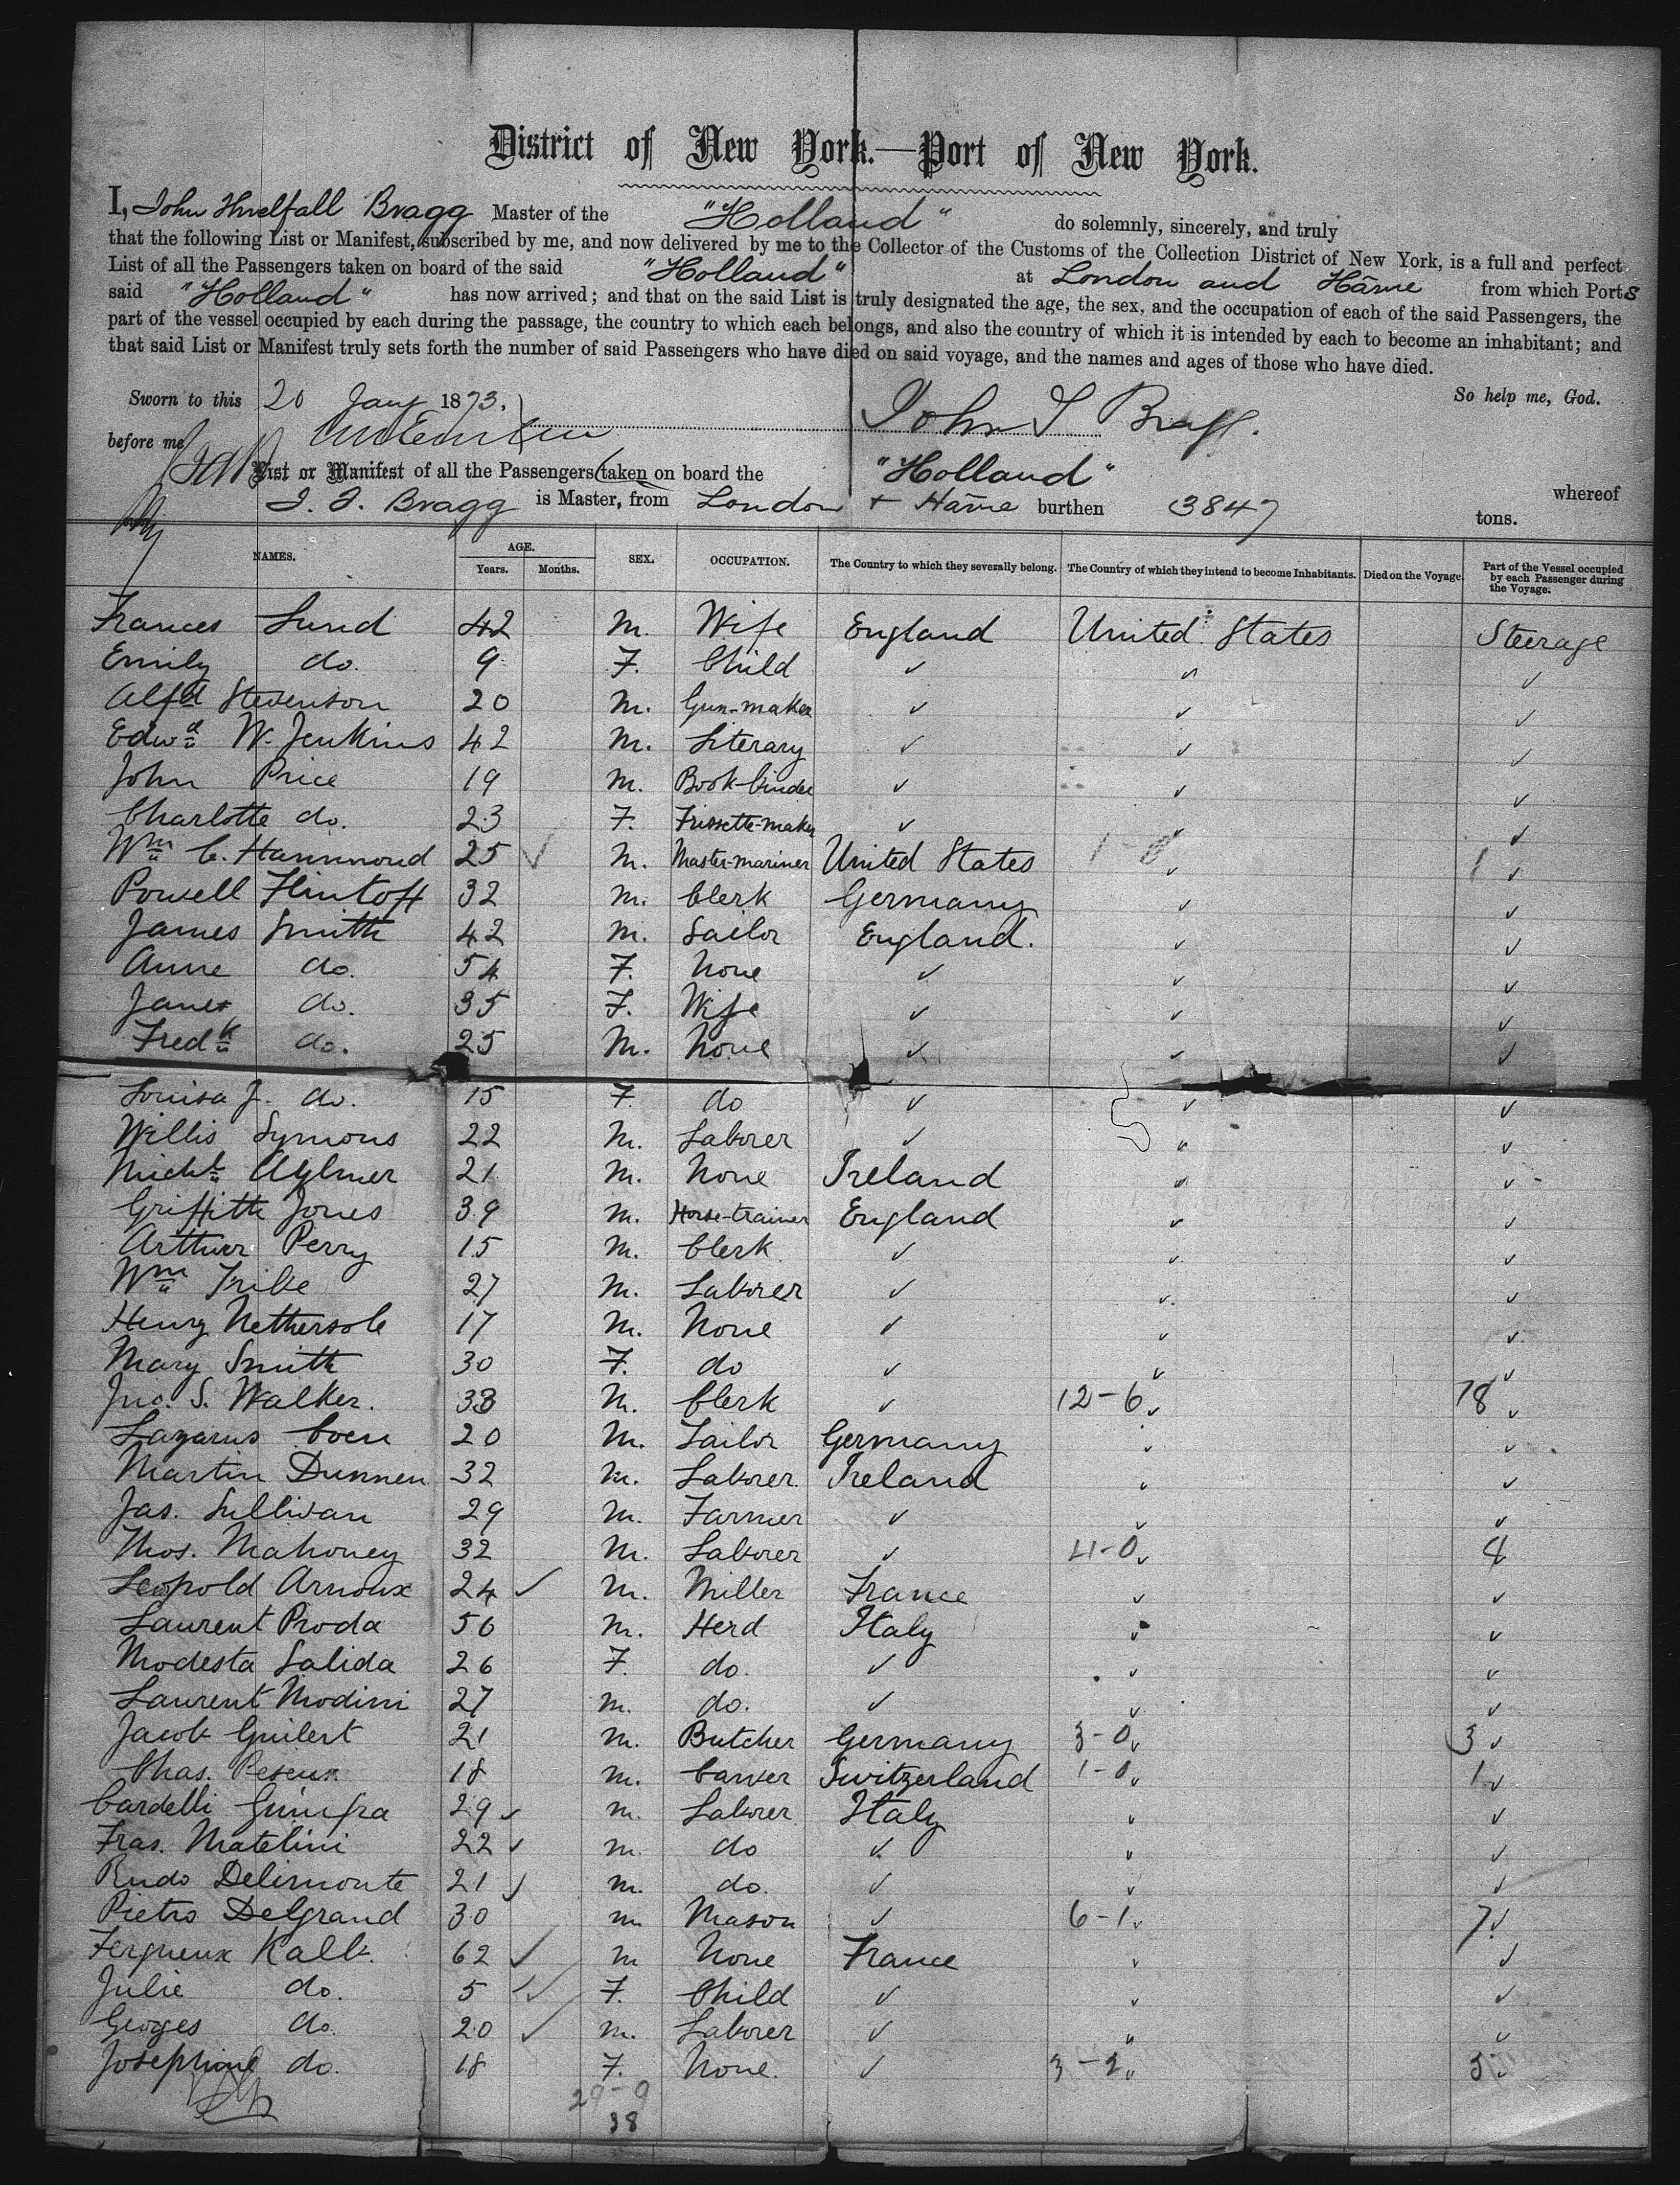 District of New York.—Port of New York.
I, John Threlfall Bragg Master of the "Holland" do solemnly, sincerely, and truly
that the following List or Manifest, subscribed by me, and now delivered by me to the Collector of the Customs of the Collection District of New York, is a full and perfect
List of all the Passengers taken on board of the said "Holland" at London and Hâvre from which Ports
said "Holland" has now arrived; and that on the said List is truly designated the age, the sex, and the occupation of each of the said Passengers, the
part of the vessel occupied by each during the passage, the country to which each belongs, and also the country of which it is intended by each to become an inhabitant; and
that said List or Manifest truly sets forth the number of said Passengers who have died on said voyage, and the names and ages of those who have died.
Sworn to this 20 Jany 1873. So help me, God.
before me John T Bragg.
List or Manifest of all the Passengers taken on board the "Holland" whereof
J. T. Bragg is Master, from London + Hâvre burthen 3847 tons.
NAMES. AGE. Years. Months. SEX. OCCUPATION. The Country to which they severally belong. The Country of which they intend to become Inhabitants. Died on the Voyage. Part of the Vessel occupied by each Passenger during the Voyage.
Frances Lund 42 M. Wife England United States Steerage
Emily do. 9 F. Child ✓ ✓ ✓
Alfd Stevenson 20 M. Gun-maker ✓ ✓ ✓
Edwd W. Jenkins 42 M. Literary ✓ ✓ ✓
John Price 19 M. Book-binder ✓ ✓ ✓
Charlotte do. 23 F. Frissette-maker ✓ ✓ ✓
Wm C. Hammond 25 ✓ M. Master-mariner United States 1-0 ✓ 1 ✓
Powell Flintoff 32 M. Clerk Germany ✓ ✓
James Smith 42 M. Sailor England. ✓ ✓
Anne do. 54 F. None ✓ ✓ ✓
Janet do. 35 F. Wife ✓ ✓ ✓
Fredk do. 25 M. None ✓ ✓ ✓
Louisa J. do. 15 F do ✓ ✓ ✓
Willis Symons 22 M. Laborer ✓ ✓ ✓
Michl Aylmer 21 M. None Ireland ✓ ✓
Griffith Jones 39 M. Horse-trainer England ✓ ✓
Arthur Perry 15 M. Clerk ✓ ✓ ✓
Wm Tribe 27 M. Laborer ✓ ✓ ✓
Henry Nethersole 17 M. None ✓ ✓ ✓
Mary Smith 30 F. do ✓ ✓ ✓
Jno. S. Walker. 33 M. Clerk ✓ 12-6 ✓ 18 ✓
Lazarus Coen 20 M. Tailor Germany ✓ ✓
Martin Dunnen 32 M. Laborer. Ireland ✓ ✓
Jas. Sullivan 29 M. Farmer ✓ ✓ ✓
Thos. Mahoney 32 M. Laborer ✓ 4-0 ✓ 4
Leopold Arnoux 24 ✓ M. Miller France ✓ ✓
Laurent Proda 56 M. Herd Italy ✓ ✓
Modesta Salida 26 F. do. ✓ ✓ ✓
Laurent Modini 27 M. do. ✓ ✓ ✓
Jacob Guilert 21 M. Butcher Germany 3-0 ✓ 3 ✓
Chas. Peseux 18 M. Carver Switzerland 1-0 ✓ 1 ✓
Cardelli 29 ✓ M. Laborer Italy ✓ ✓
Fras. Matelini 22 ✓ M. do ✓ ✓ ✓
Rudo Delimonte 21 ✓ M. do. ✓ ✓ ✓
Pietro DelGrand 30 M Mason ✓ 6-1 ✓ 7 ✓
Fergueux Kalb. 62 ✓ M None France ✓ ✓
Julie do. 5 ✓ F. Child ✓ ✓ ✓
Georges do. 20 ✓ M. Laborer ✓ ✓ ✓
Josephine do. 18 F. None. ✓ 3-2 ✓ 5 ✓
29-9
38